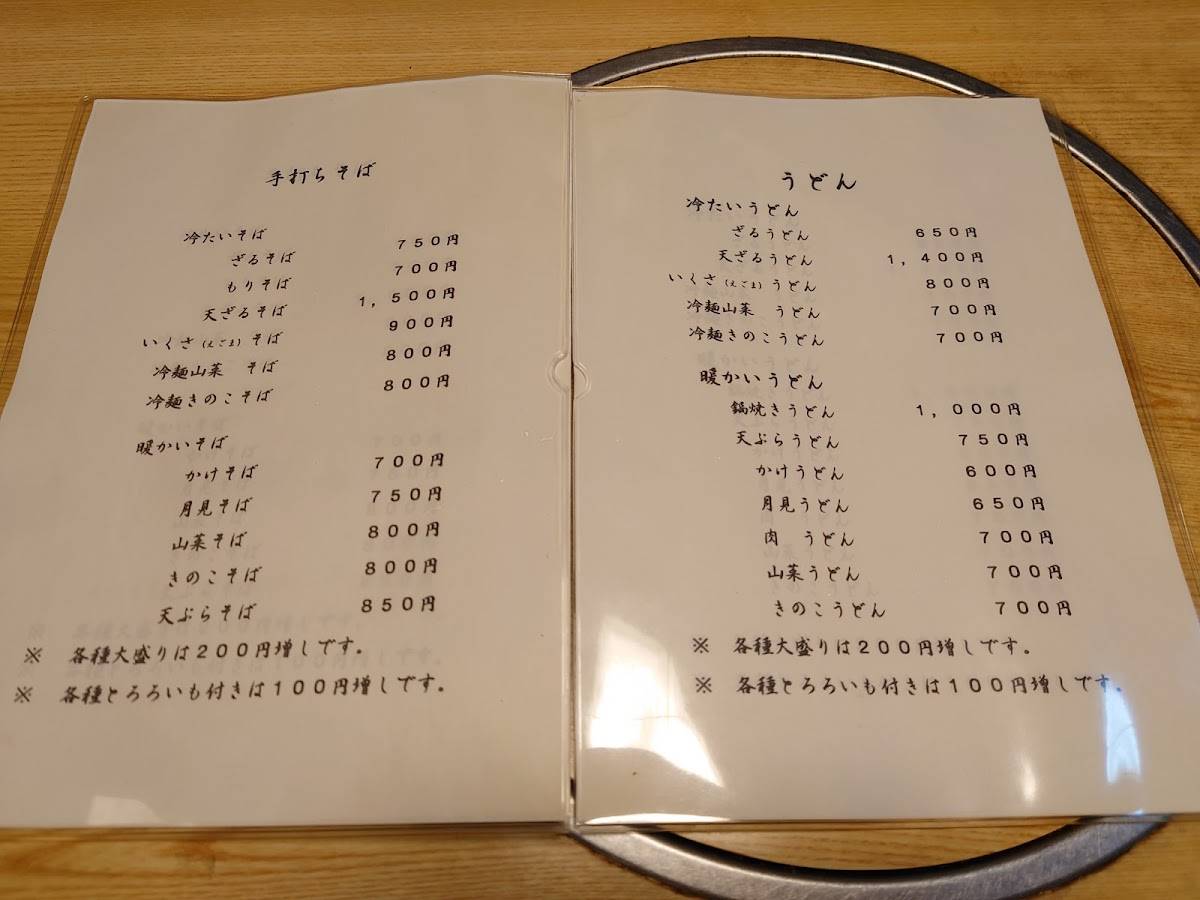 手打ちそば
冷たいそば
ざるそば 750円
もりそば 700円
天ざるそば 1,500円
いくさ(えごま)そば 900円
冷麺山菜 そば 800円
冷麺きのこそば 800円
暖かいそば
かけそば 700円
月見そば 750円
山菜そば 800円
きのこそば 800円
天ぷらそば 850円
※ 各種大盛りは200円増しです。
※ 各種とろろいも付きは100円増しです。
うどん
冷たいうどん
ざるうどん 650円
天ざるうどん 1,400円
いくさ(えごま)うどん 800円
冷麺山菜 うどん 700円
冷麺きのこうどん 700円
暖かいうどん
鍋焼きうどん 1,000円
天ぷらうどん 750円
かけうどん 600円
月見うどん 650円
肉 うどん 700円
山菜うどん 700円
きのこうどん 700円
※ 各種大盛りは200円増しです。
※ 各種とろろいも付きは100円増しです。